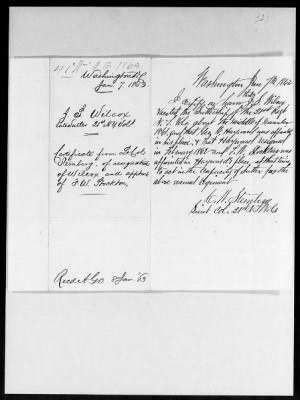 Washington D.C.
Jan 7, 1863
J. S. Wilcox
21st N.Y. Vols
Certificate from Lt Col
Sternberg, of resignation
of Wilcox and appoint
of E. W. Stockton,
Recd A.G.O. 8 Jan '63
Washington Jan 7th 1863
I certify on honor J. S. Wilcox
vacated the Sutlership of the 21st Regt
N.Y. Vols about the middle of November
1861, and that Geo W. Hayward was appointed
in his place, & that Hayward resigned
in February 1862 and E. W. Stockton was
appointed in Hayward's place, at that time
to act in the capacity of Sutler for the
above named Regiment
Lieut Col. 21st N.Y. Vols